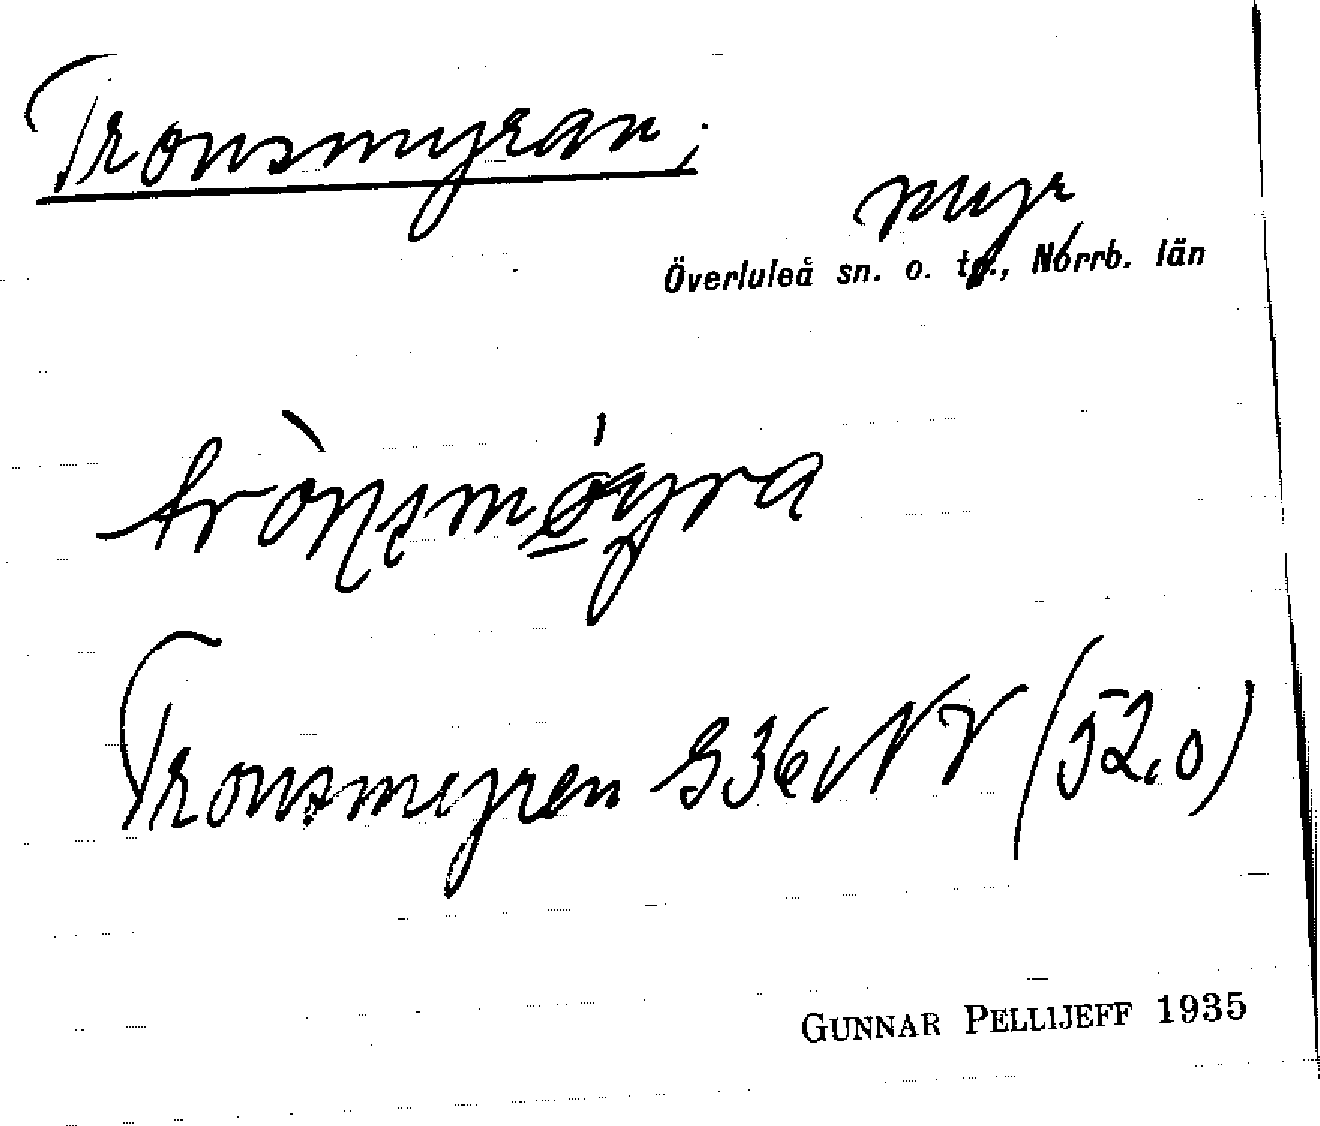 Tronsmyran,
myr
Överluleå sn. o. tg., Norrb. län
trònsmǿyra
Tronsmyren S36NV (52.0)
GUNNAR PELLIJEFF 1935